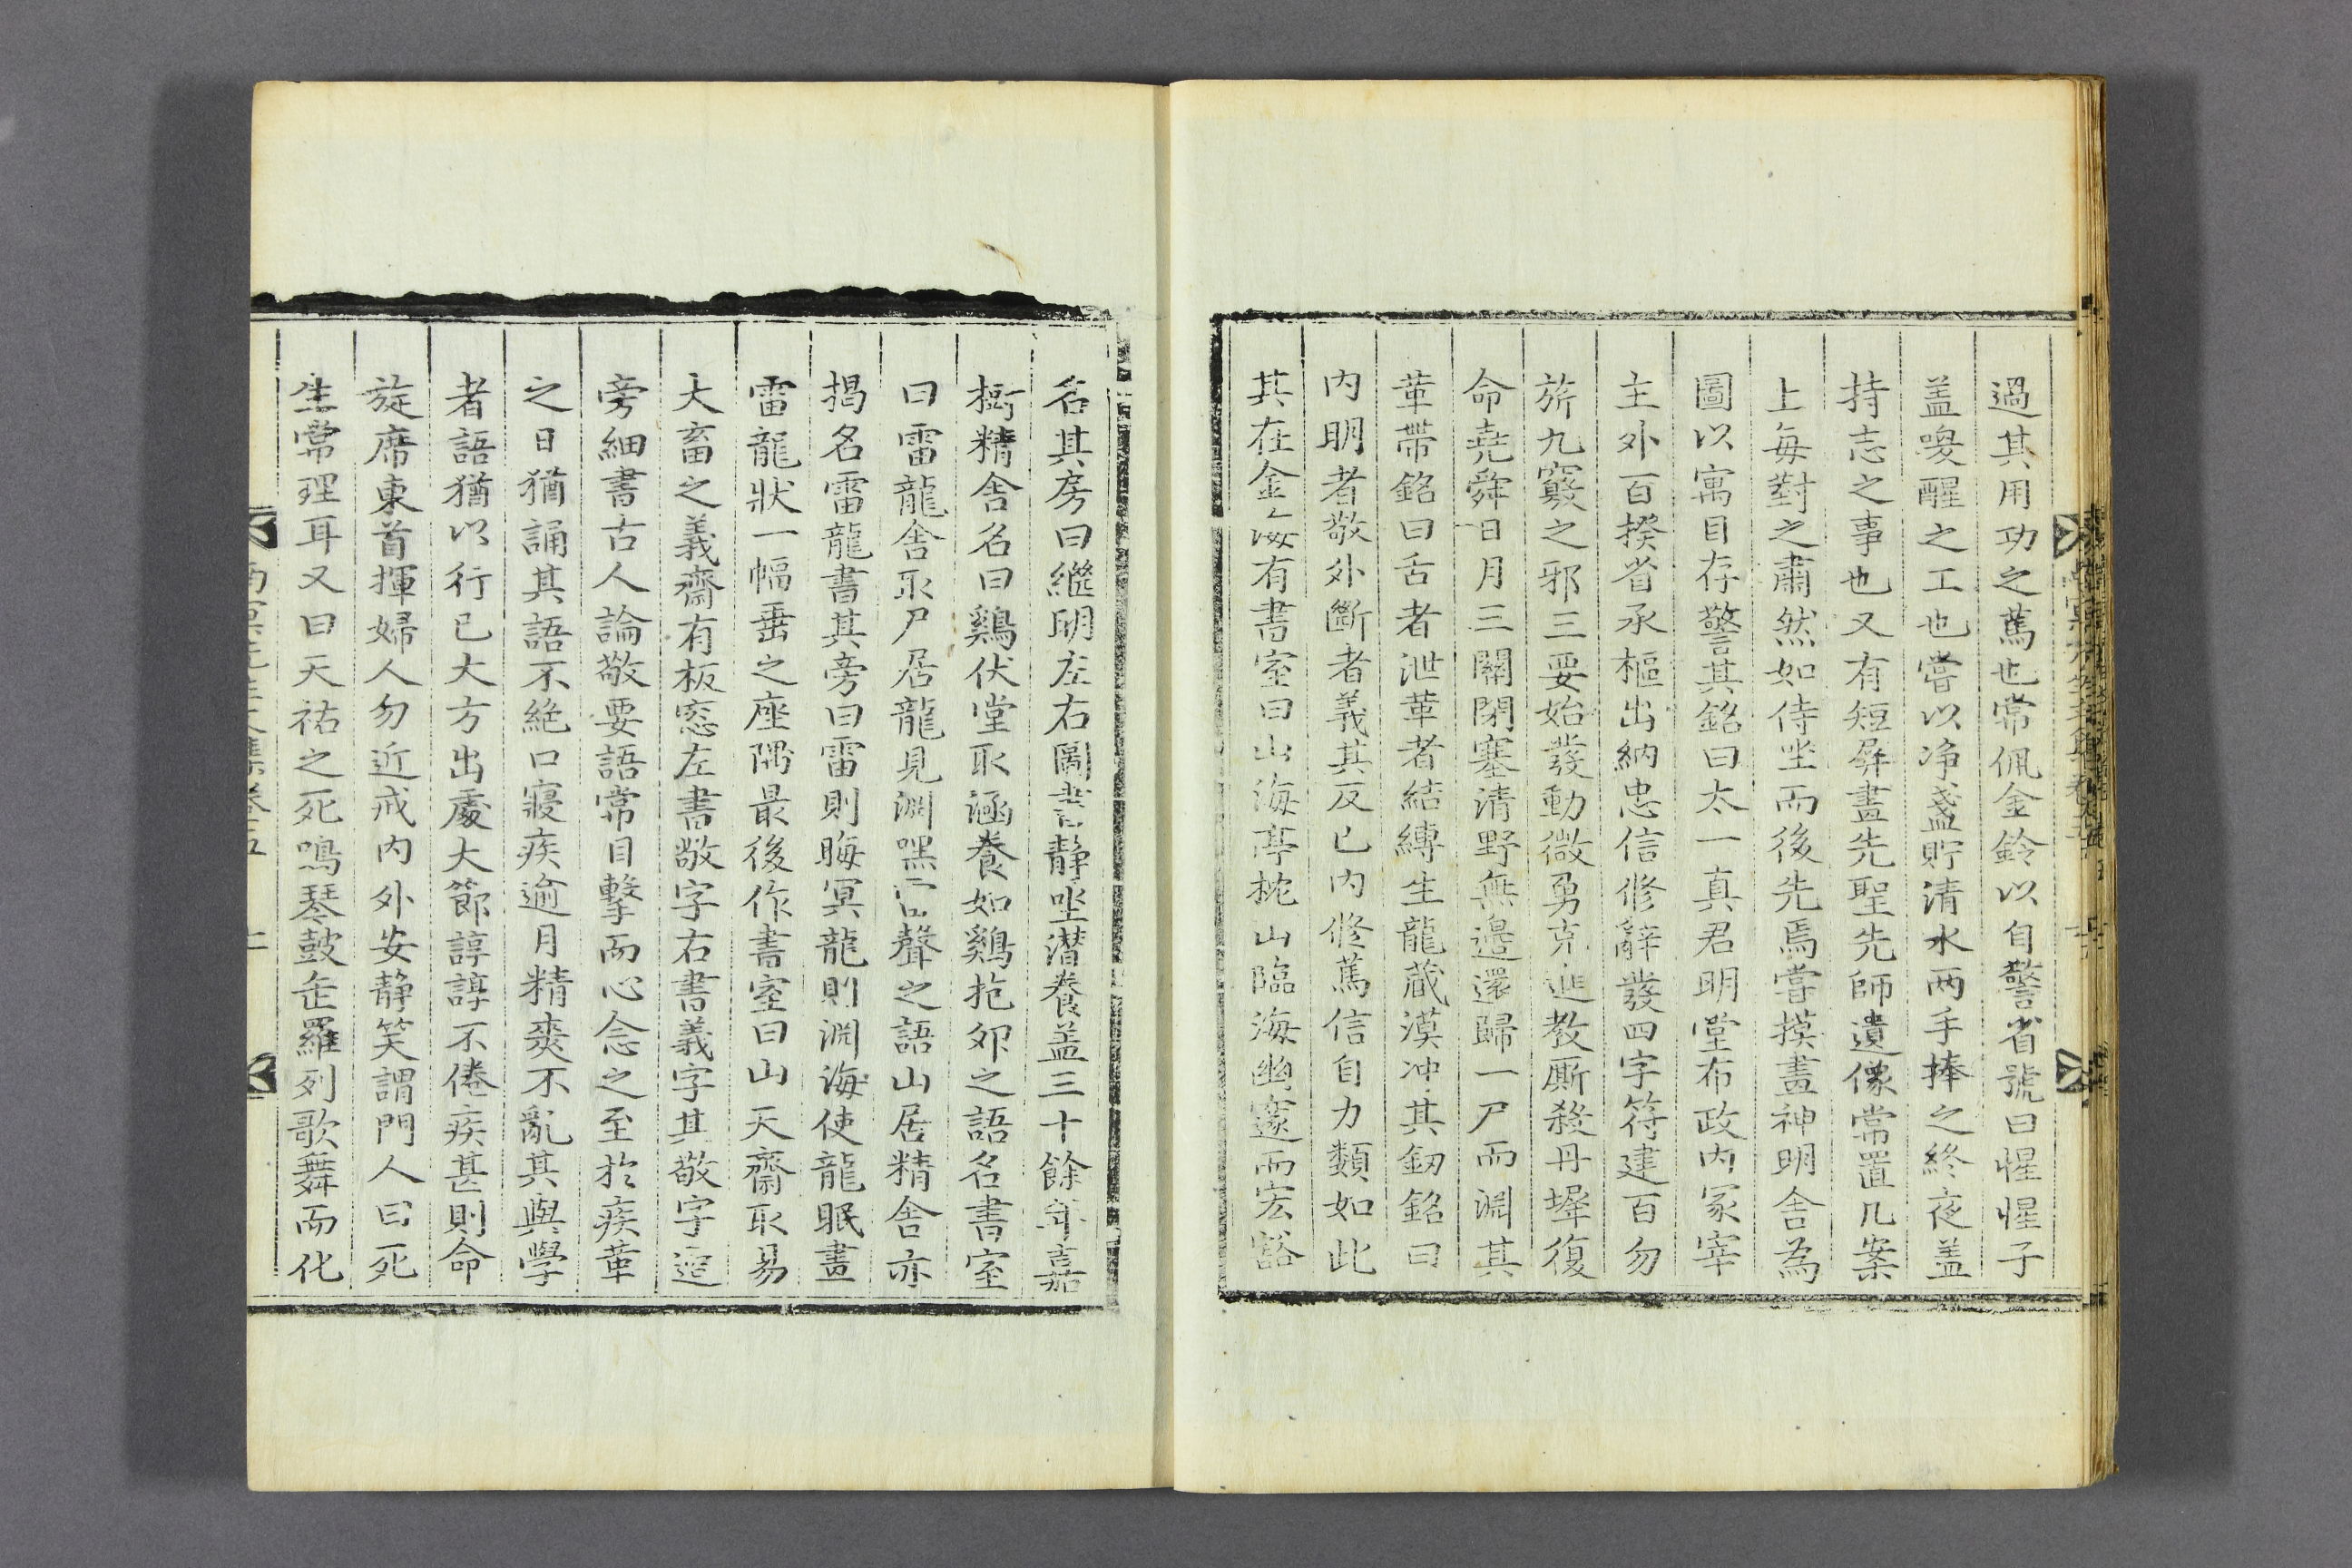 過其用功之篤也常佩金鈴以自警省號曰惺惺子
盖喚醒之工也嘗以净盞貯清水兩手捧之終夜盖
持志之事也又有短屛畫先聖先師遺像常置几案
上每對之肅然如侍坐而後先焉嘗摸畫神明舍為
圖以寓目存警其銘曰太一真君明堂布政內冢宰
主外百揆省承樞出納忠信修辭發四字符建百勿
旂九竅之邪三要始發動微勇克進敎厮殺丹墀復
命堯舜日月三關閉塞清野無邊還歸一尸而淵其
革帶銘曰舌者泄革者結縛生龍藏漠冲其釰銘曰
內明者敬外斷者義其反已內修篤信自力類如此
其在金海有書室曰山海亭枕山臨海幽邃而宏豁
名其房曰繼明左右圖書靜坐潜養盖三十餘年嘉
樹精舍名曰鷄伏堂取涵養如鷄抱夘之語名書室
曰雷龍舍取尸居龍見淵嘿雷聲之語山居精舍亦
揭名雷龍書其旁曰雷則晦冥龍則淵海使龍眠畫
雷龍狀一幅垂之座隅最後作書室曰山天齋取易
大畜之義齋有板窓左書敬字右書義字其敬字邊
旁細書古人論敬要語常目擊而心念之至於疾革
之日猶誦其語不絶口寢疾逾月精爽不亂其與學
者語猶以行已大方出處大節諄諄不倦疾甚則命
旋席東首揮婦人勿近戒內外安靜笑謂門人曰死
生常理耳又曰天祐之死鳴琴鼓缶羅列歌舞而化